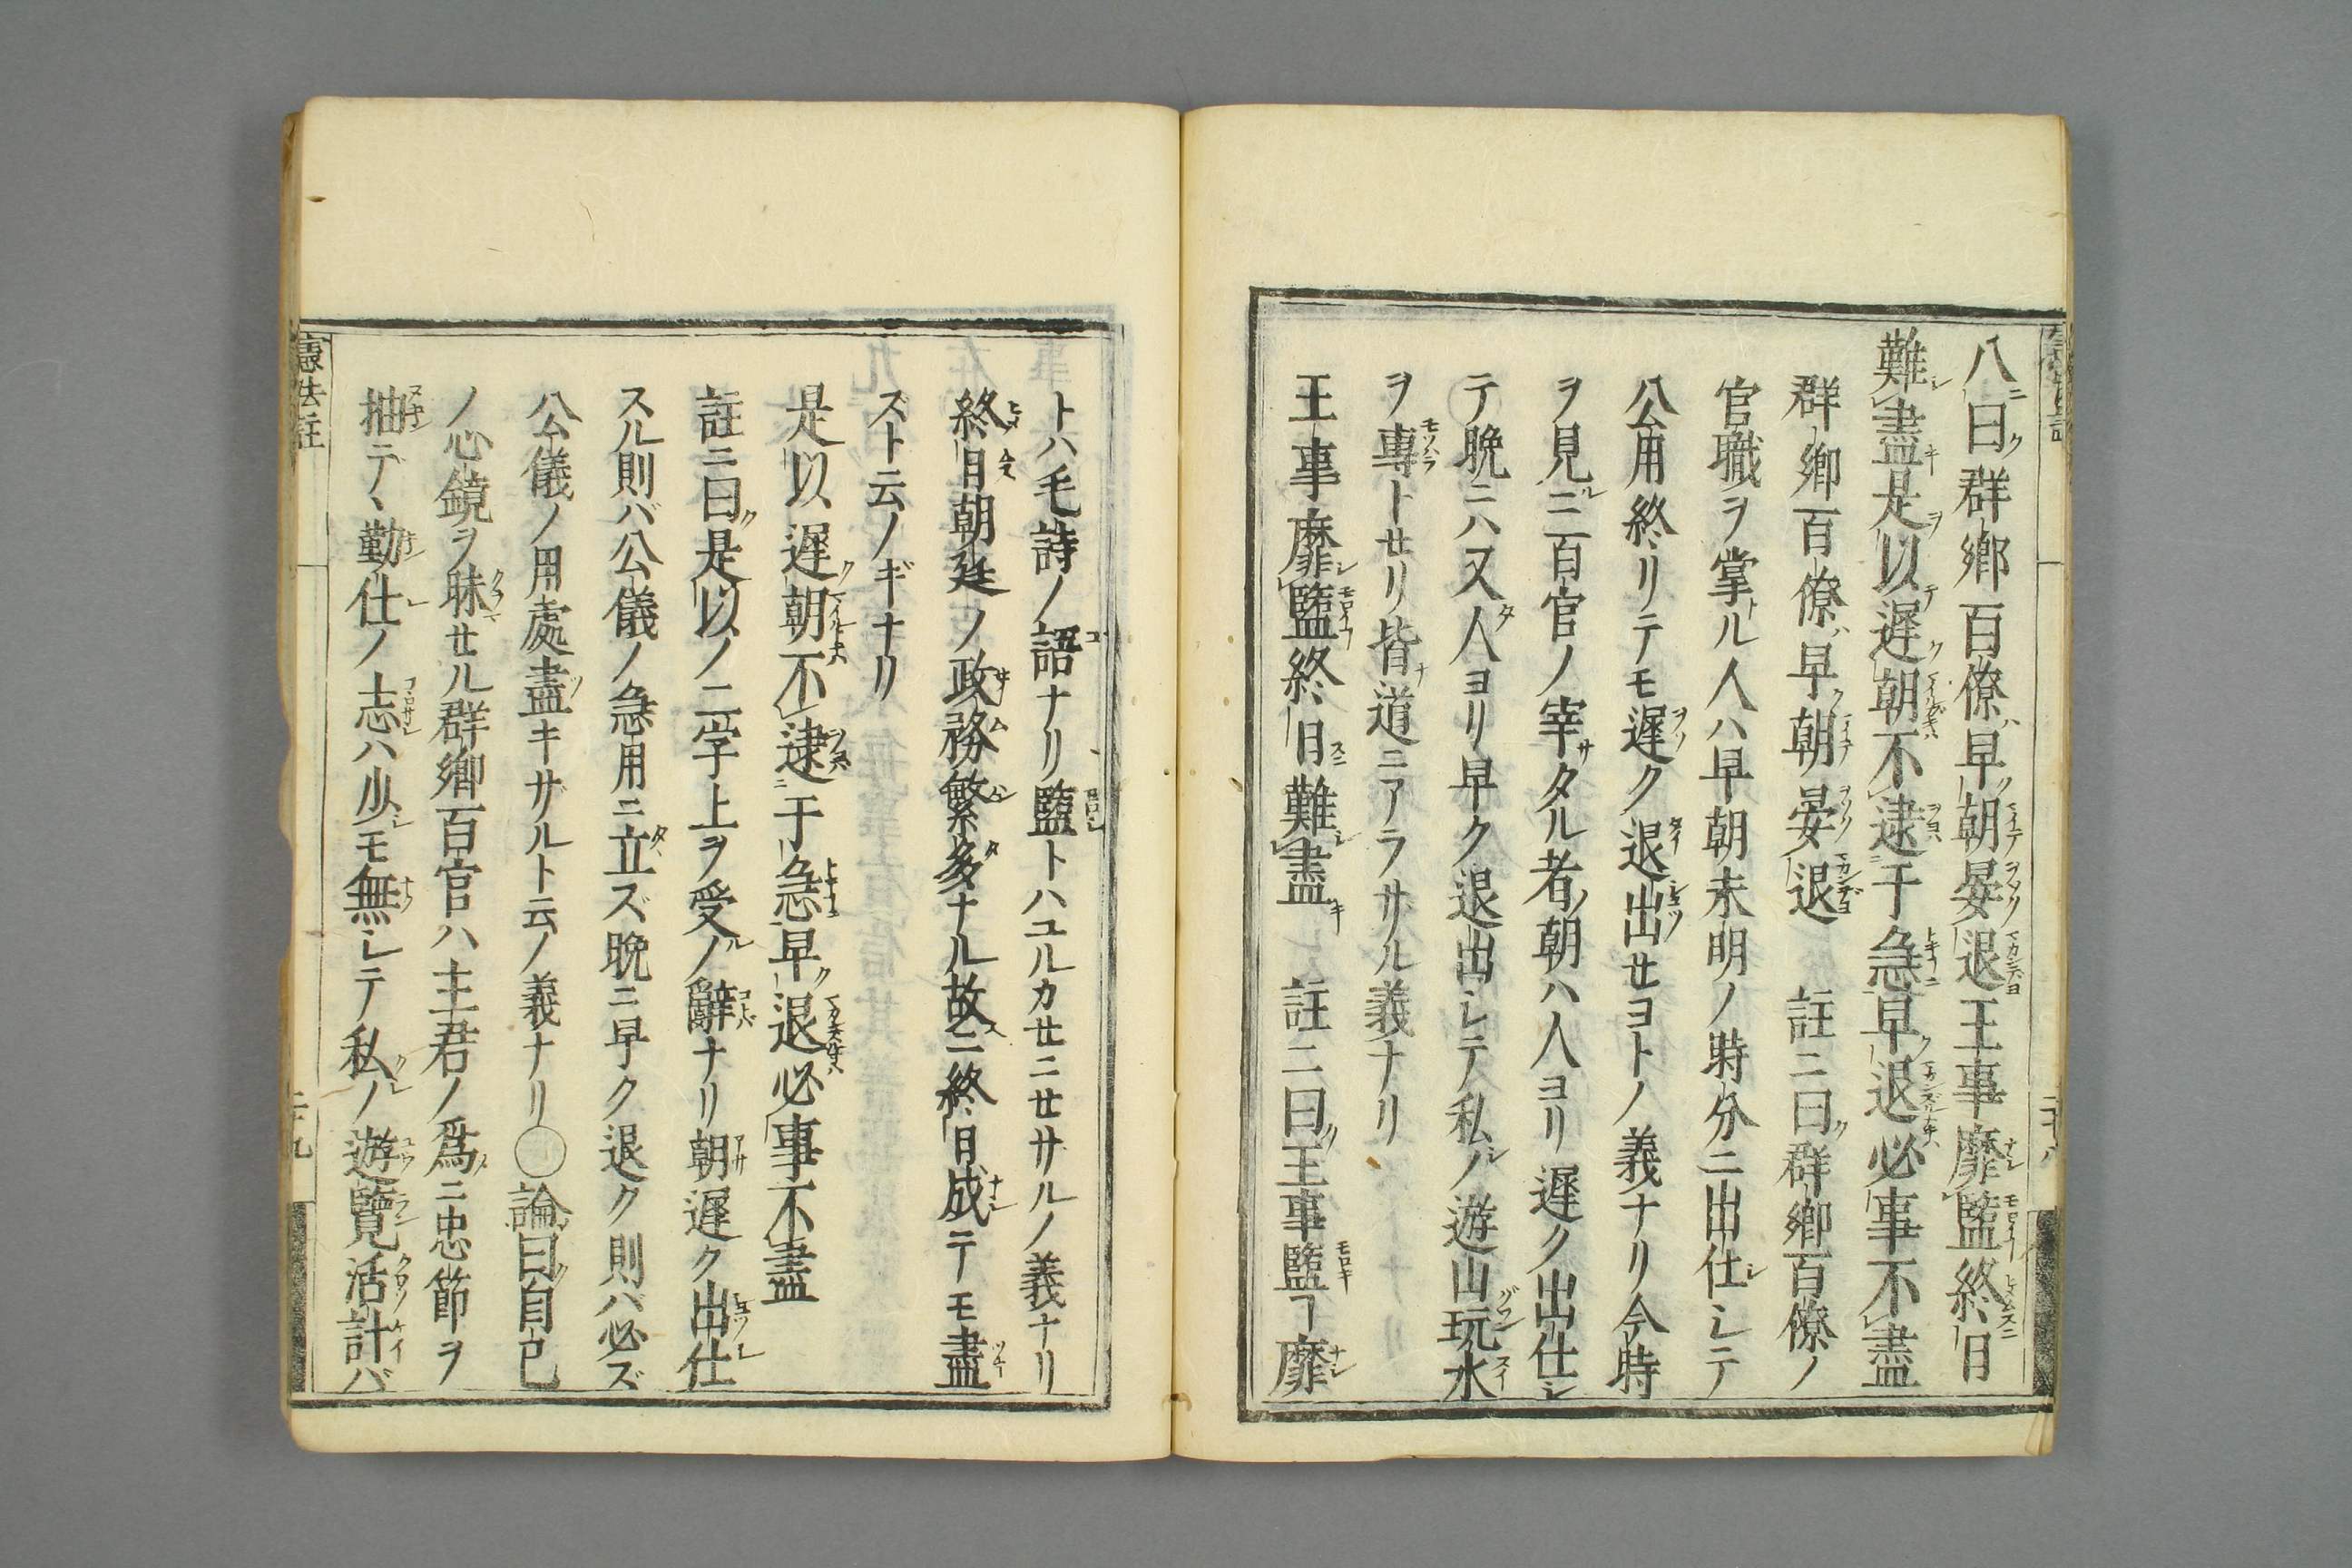 八曰群鄕百僚早朝晏退王事靡盬終日
難盡是以遲朝不逮于急早退必事不盡
群鄕百僚早朝晏退　註ニ曰群鄕百僚ノ
官職ヲ掌ル人ハ早朝未明ノ時分ニ出仕シテ
公用終リテモ遲ク退出セヨトノ義ナリ今時
ヲ見ルニ百官ノ宰タル者朝ハ人ヨリ遲ク出仕シ
テ晩ニハ又人ヨリ早ク退出シテ私ノ遊山玩水
ヲ專トセリ皆道ニアラサル義ナリ
王事靡盬終日難盡　註ニ曰王事盬ヿ靡
トハ毛詩ノ語ナリ盬トハユルカセニセサルノ義ナリ
終日朝廷ノ政務繁多ナル故ニ終日成テモ盡
スト云ノギナリ
是以遲朝不逮于急早退必事不盡
註ニ曰是以ノ二字上ヲ受ノ辭ナリ朝遲ク出仕
スル則バ公儀ノ急用ニ立ズ晩ニ早ク退ク則バ必ズ
公儀ノ用處盡キサルト云ノ義ナリ〇論曰自己
ノ心鏡ヲ昧セル群鄕百官ハ主君ノ爲ニ忠節ヲ
抽テヽ勤仕ノ志ハ少モ無シテ私ノ遊覽活計バ
憲法註
二十九